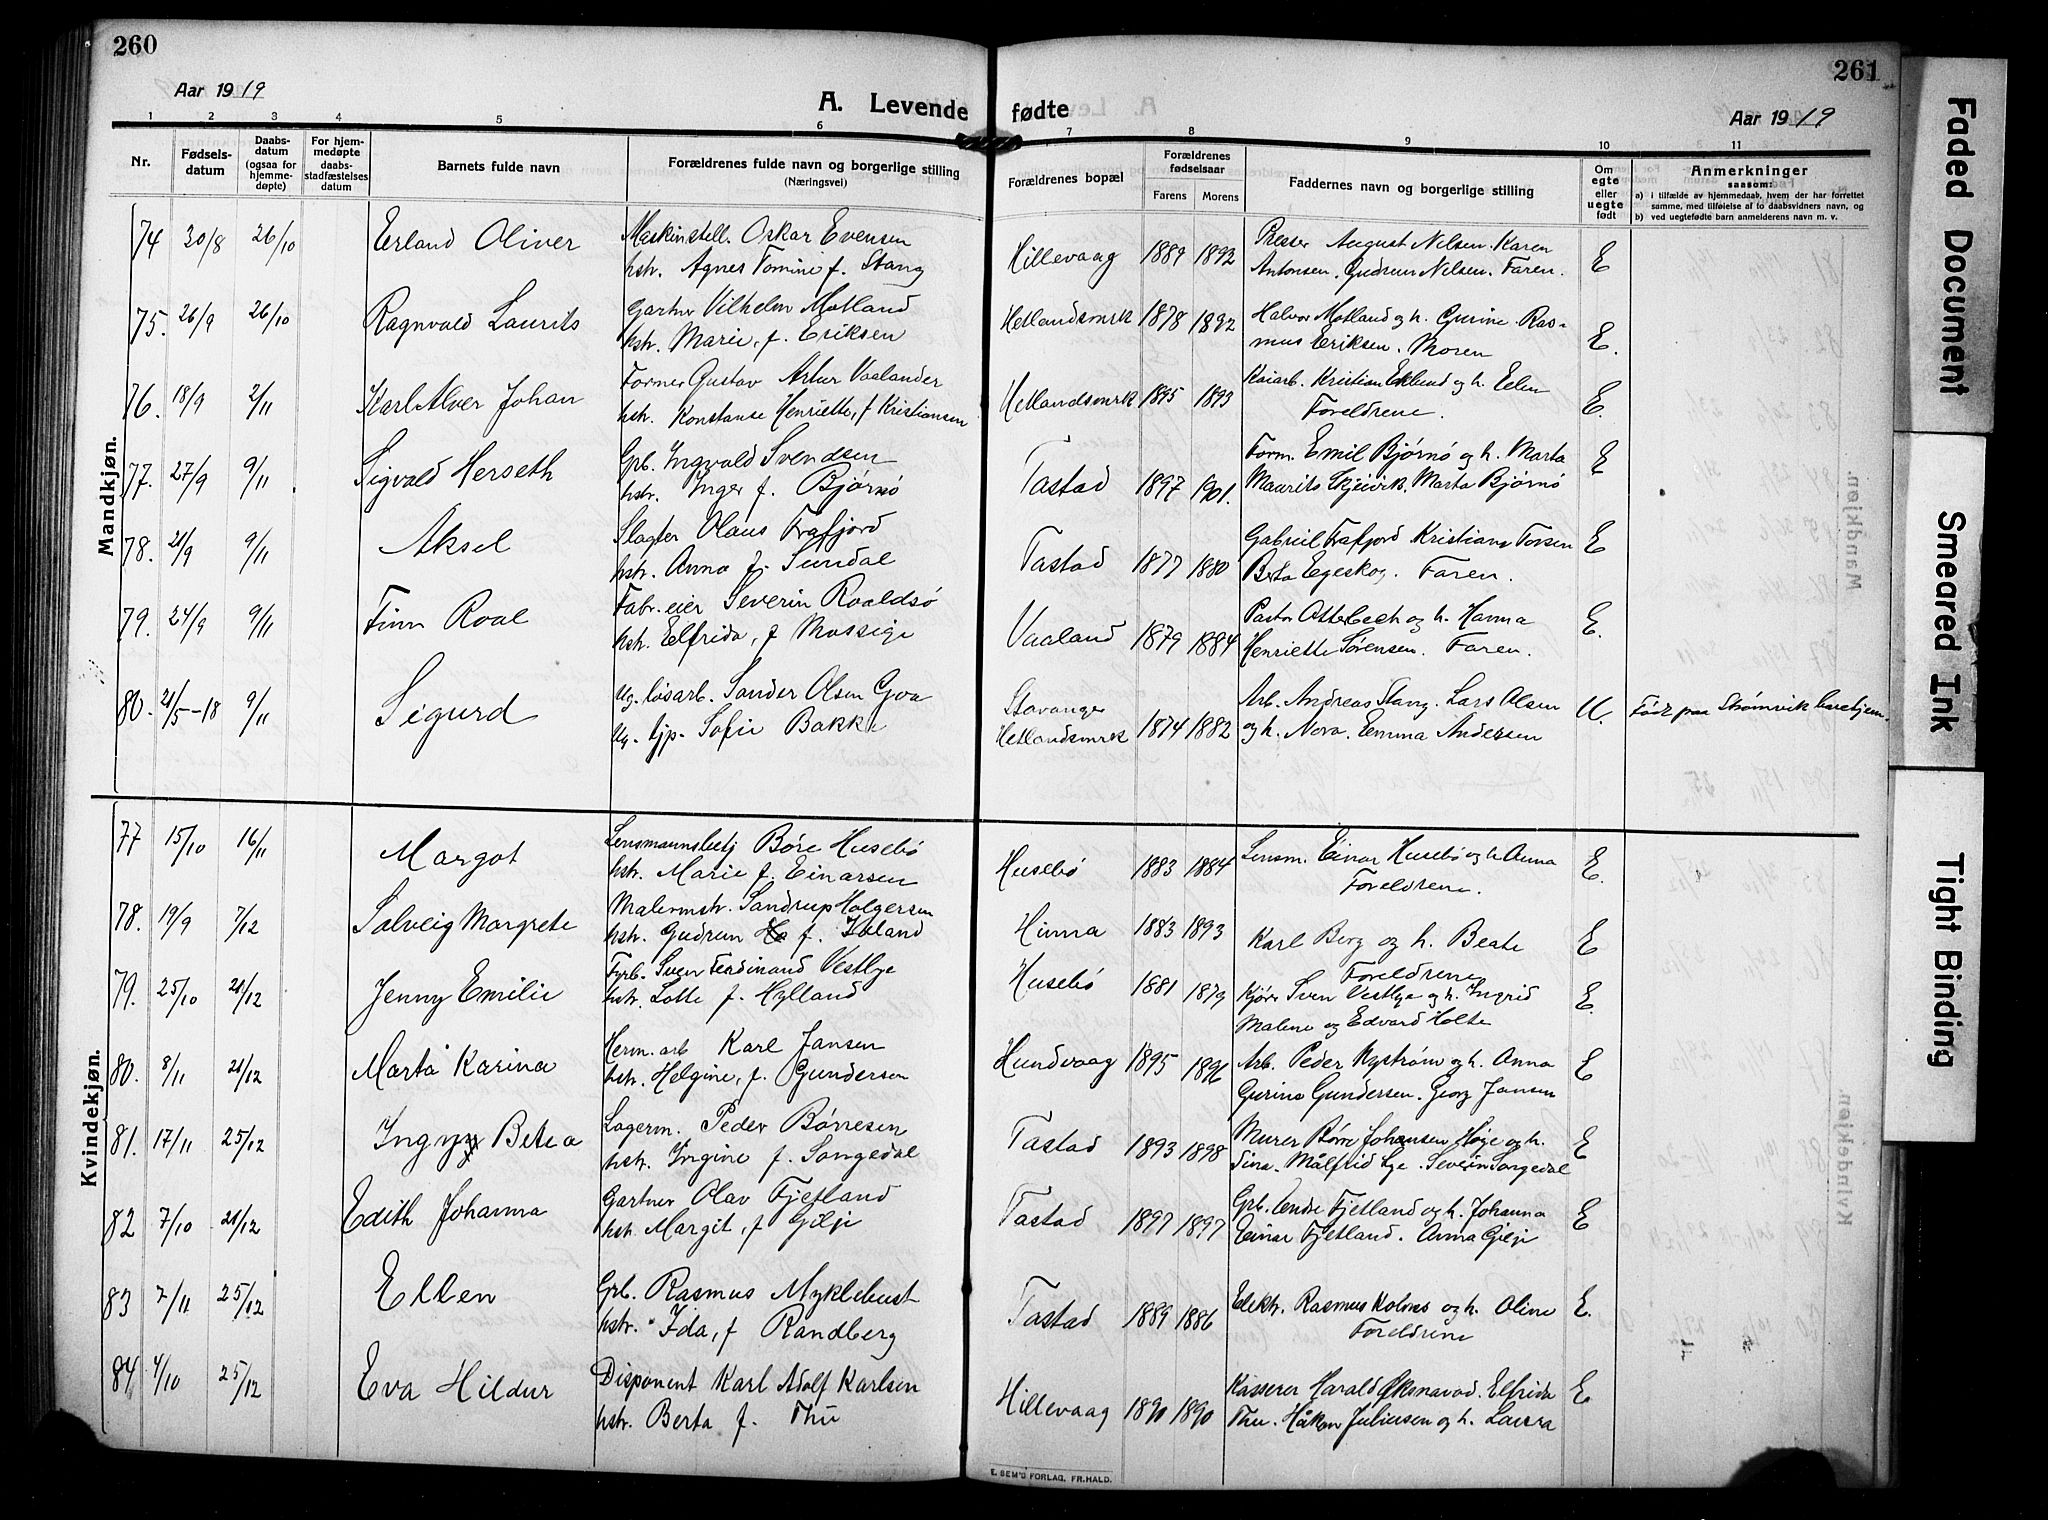 260
Aar 1919
A. Levende
1 2 3 4 5 6
Nr.
Fødsels-
datum
Daabs-
datum
(ogsaa for
hjemme-
døpte)
For hjem-
medøpte
daabs-
stadfæstelses
datum
Barnets fulde navn
Forældrenes fulde navn og borgerlige stilling
(Næringsvei)
Mandkjøn.
74 30/8 26/10 Erland Oliver Maskinstell. Oskar Evensen
hstr. Agnes Tomine f. Stang
75. 26/9 26/10 Ragnvald Laurits Gartner Vilhelm Motland
hstr. Marie, f. Eriksen
76. 18/9 2/11 Karl Alver Johan Former Gustav Artur Vaalander
hstr. Konstanse Henriette, f Kristiansen
77. 27/9 9/11 Sigvald Herseth Gpb. Ingvald Svendsen
hstr. Inger f. Bjørnø
78. 21/9 9/11 Aksel Slagter Olaus Frafjord
hstr. Anna f. Sundal
79. 24/9 9/11 Finn Roal Fabr. eier Severin Roaldsø
hstr. Elfrida, f Mossige
80. 21/5-18 9/11 Sigurd Ug. løsarb. Sander Olsen Goa
Ug. tjp. Sofie Bakke
Kvindekjøn.
77 15/10 16/11 Margot Lensmannsbetj Børe Husebø
hstr. Marie f. Einarsen
78. 19/9 7/12 Solveig Margrete Malermstr. Sandrup Holgersen
hstr. Gudrun f. Ibland
79. 25/10 21/12 Jenny Emilie Fyrb. Sven Ferdinand Vestlye
hstr. Lotte f. Hylland
80. 8/11 21/12 Marta Karina Herm. arb Karl Jansen
hstr. Helgine, f. Gundersen
81. 17/11 25/12 Betea Lagerm. Peder Børresen
hstr. Ingine f. Songedal
82 7/10 21/12 Edith Johanna Gartner Olav Fjetland
hstr. Margit, f Gilje
83 7/11 25/12 Ellen Gpb. Rasmus Myklebust
hstr. Ida, f Randberg
84 4/10 25/12 Eva Hildur Disponent Karl Adolf Karlsen
hstr. Berta f. Thu
261
Aar 1919
fødte
7 8 9 10 11
Forældrenes bopæl
Forældrenes
fødselsaar
Farens Morens
Faddernes navn og borgerlige stilling
Om
egte
eller
uegte
født
Anmerkninger
saasom:
a) i tilfælde av hjemmedaab, hvem der har forrettet
samme, med tilføielse af to daabsvidners navn, og
b) ved uegtefødte barn anmelderens navn m. v.
Hillevaag 1889 1892 Presser August Nilsen. Karen
Antonsen. Gudrun Nilsen. Faren. E
Hetlandsmrk 1878 1892 Halvor Motland og h. Gurine. Ras-
mus Eriksen. Moren E.
Hetlandsmrk 1895 1893 Kaiarb. Kristian Eklund og h. Ellen
Foreldrene. E.
Tastad 1897 1901. Form. Emil Bjørnø og h. Marta
Maurits Skjeivik. Marta Bjørnø E
Tastad 1877 1880 Gabriel Frafjord Kristians Torsen
Berta Egeskog. Faren. E
Vaaland 1879 1884 Pastor Otterbech og h. Hanna
Henriette Sørensen. Faren. E.
Stavanger
Hetlandsmrk 1874 1882 Arb. Andreas Stang. Lars Olsen
og h. Nora. Emma Andersen U. Født paa Strømvik barehjem.
Husebø 1883 1884 Lensm. Einar Husebø og h Anna
Foreldrene. E.
Hinna 1883 1893 Karl Berg og h. Beate
Foreldrene E
Husebø 1881 1879 Kjørs Sven Vestlye og h. Ingrid
Malene og Edvard Holte E.
Hundvaag 1895 1896 Arb. Peder Nystrøm og h. Anna
Gurine Gundersen. Georg Jansen E
Tastad 1893 1898 Murer Børre Johansen Høie og h.
Sina. Målfrid Lye. Severin Songedal E
Tastad 1897 1897 Gpb. Endre Fjetland og h. Johanna
Einar Fjetland. Anna Gilje E
Tastad 1889 1886 Elektr. Rasmus Kolnes og h. Oline
Foreldrene E.
Hillevaag 1890 1890 Kasserer Harald Øksnavad. Elfrida
Thu. Håkon Juliussen og h. Laura E
E. SEM'S FORLAG, FR.HALD.
Faded Document
Smeared Ink
Tight Binding